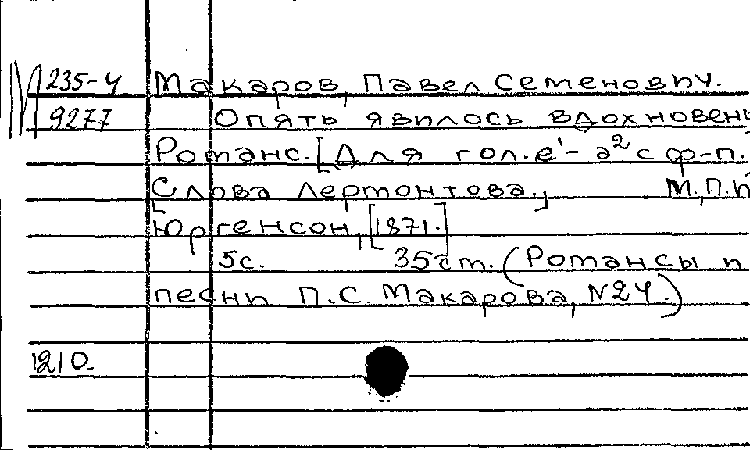 М 235-4 Макаров, Павел Семенович.
9277 Опять явилось вдохновень
Романс. [Для гол. e¹-a² с ф-п.
Слова Лермонтова.] М., П.И
Юргенсон, [1871.]
5с. 35см. (Романсы и
песни П.С. Макарова, №24.)
1210.